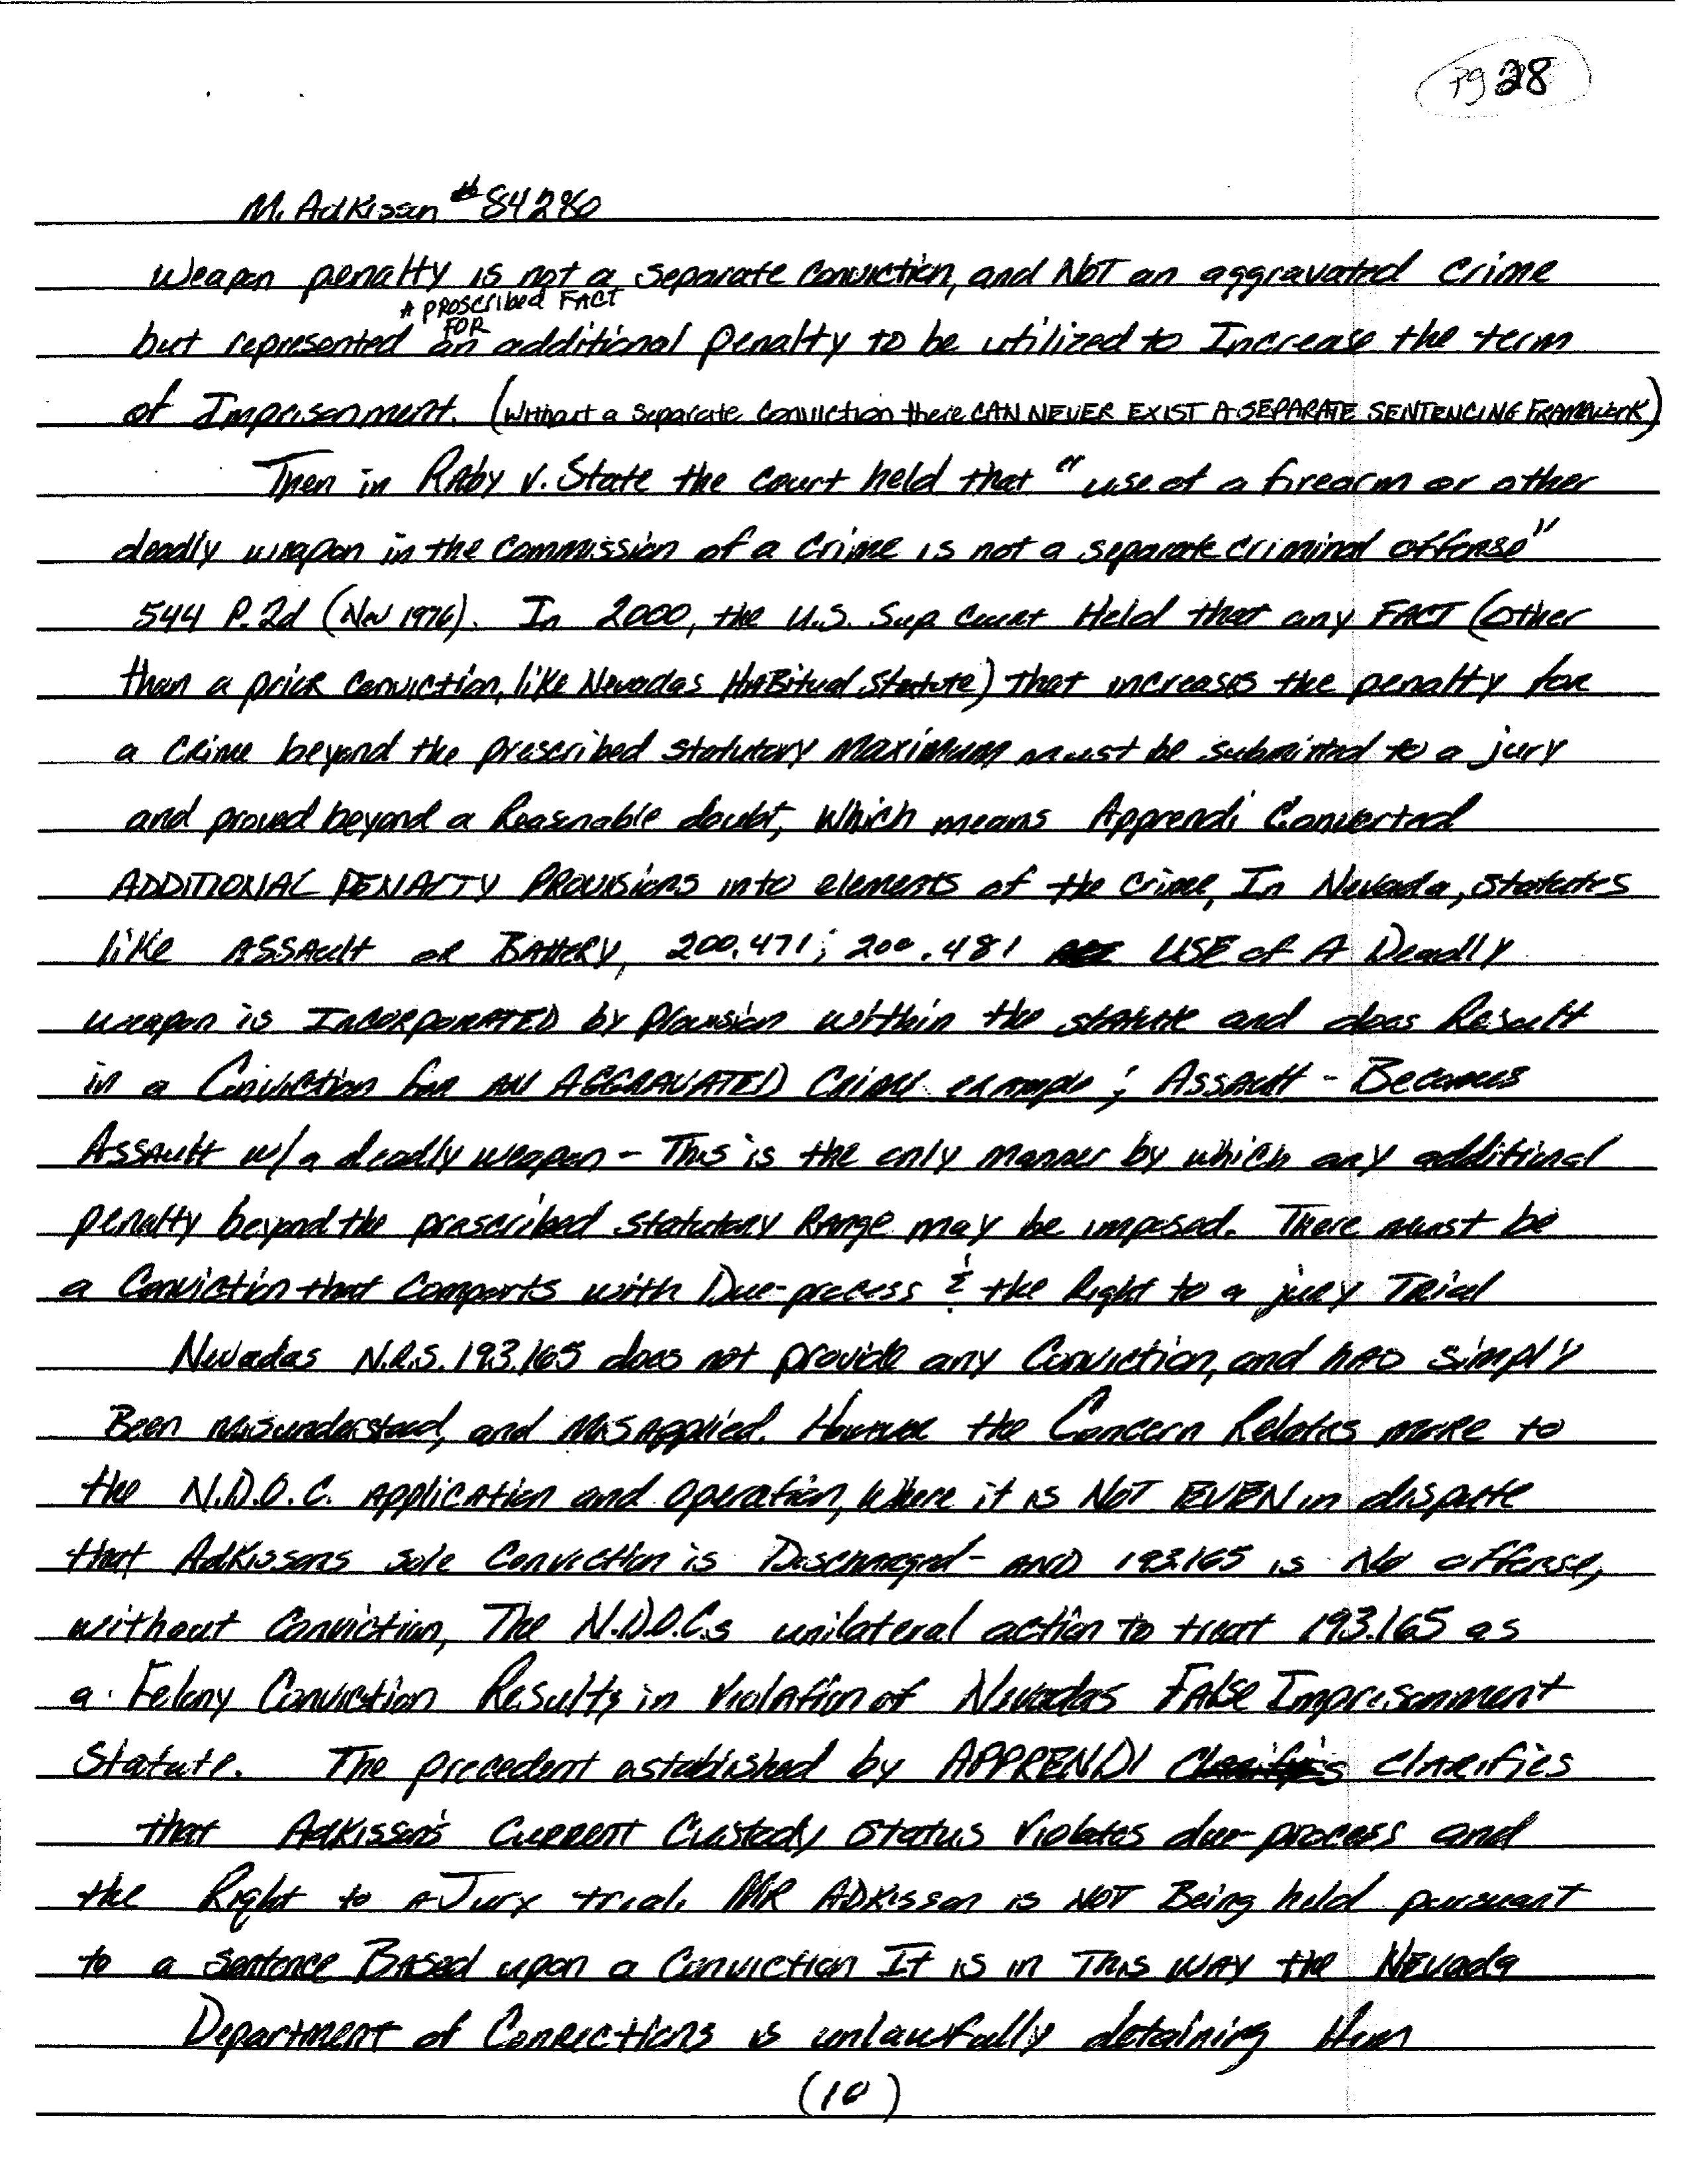 Pg 28
M. Adkisson # 84280
Weapon penalty is not a separate conviction, and NOT an aggravated crime
A PROScribed FACT
FOR
but represented an additional penalty to be utilized to Increase the term
of Imprisonment. (Without a separate conviction there CAN NEVER EXIST A SEPARATE SENTENCING FRAMEWORK)
Then in Raby v. State the court held that "use of a firearm or other
deadly weapon in the commission of a crime is not a separate criminal offense"
544 P.2d (Nev 1976). In 2000, the U.S. Sup Court Held that any FACT (other
than a prior conviction, like Nevadas HABitual Statute) that increases the penalty for
a crime beyond the prescribed statutory maximum must be submitted to a jury
and proved beyond a Reasnable doubt, Which means Apprendi Converted
ADDITIONAL PENALTY PROVISIONS into elements of the crime, In Nevada, statutes
like ASSAult or BAttery, 200.471; 200.481 USE of A Deadly
weapon is INCORPORATED by Provision within the statute and does Result
in a Conviction for AN AGGRAVATED Crime example; Assault - Becomes
Assault w/a deadly weapon - This is the only manner by which any additional
penalty beyond the prescribed statutory RANge may be imposed. There must be
a Conviction that Comports with Due-process & the Right to a jury Trial
Nevadas N.R.S. 193.165 does not provide any Conviction, and HAD simply
Been misunderstood, and MisApplied. However the Concern Relates more to
the N.D.O.C. Application and Operation, Where it is NOT EVEN in dispute
that Adkissons sole Conviction is Discharged - AND 193.165 is No offense,
without Conviction, The N.D.O.C.s unilateral action to treat 193.165 as
a Felony Conviction Results in Violation of Nevadas FAlse Imprisonment
Statute. The precedent established by APPRENDI Clarifies clarifies
that Adkisson's Current Custody Status Violates due-process and
the Right to A Jury trial. MR ADKisson is NOT Being held pursuant
to a sentence Based upon a Conviction It is in This WAY the Nevada
Department of Corrections is unlawfully detaining Him
(10)